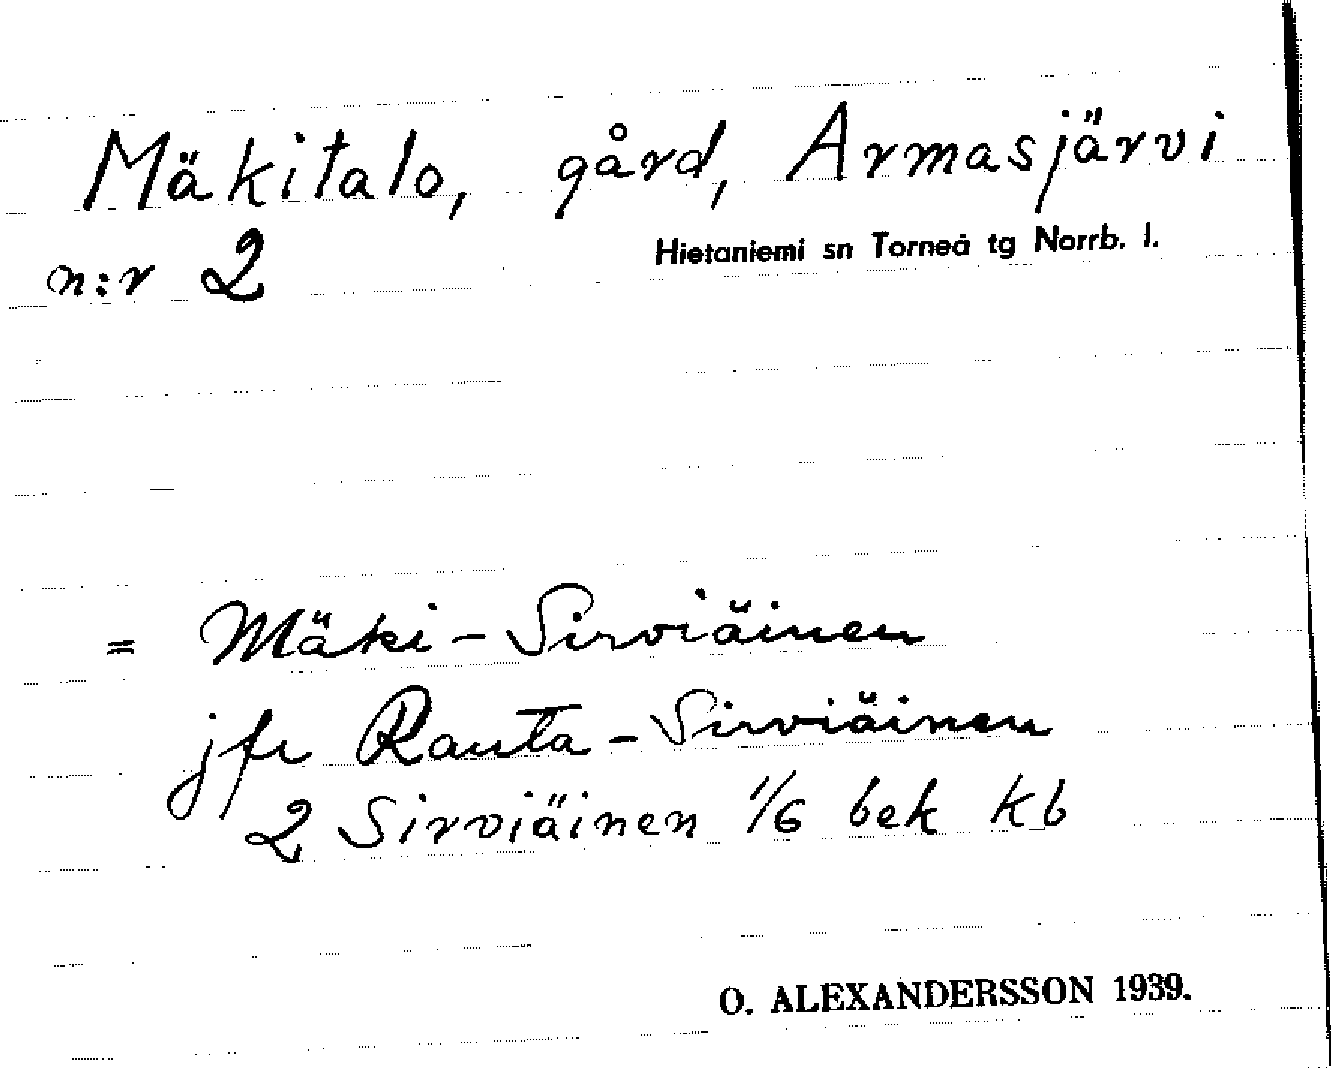 Mäkitalo, gård, Armasjärvi
n:r 2
Hietaniemi sn Torneå tg Norrb. l.
= Mäki-Sirviäinen
jfr Rauta-Sirviäinen
2 Sirviäinen 1/6 bek kb
O. ALEXANDERSSON 1939.